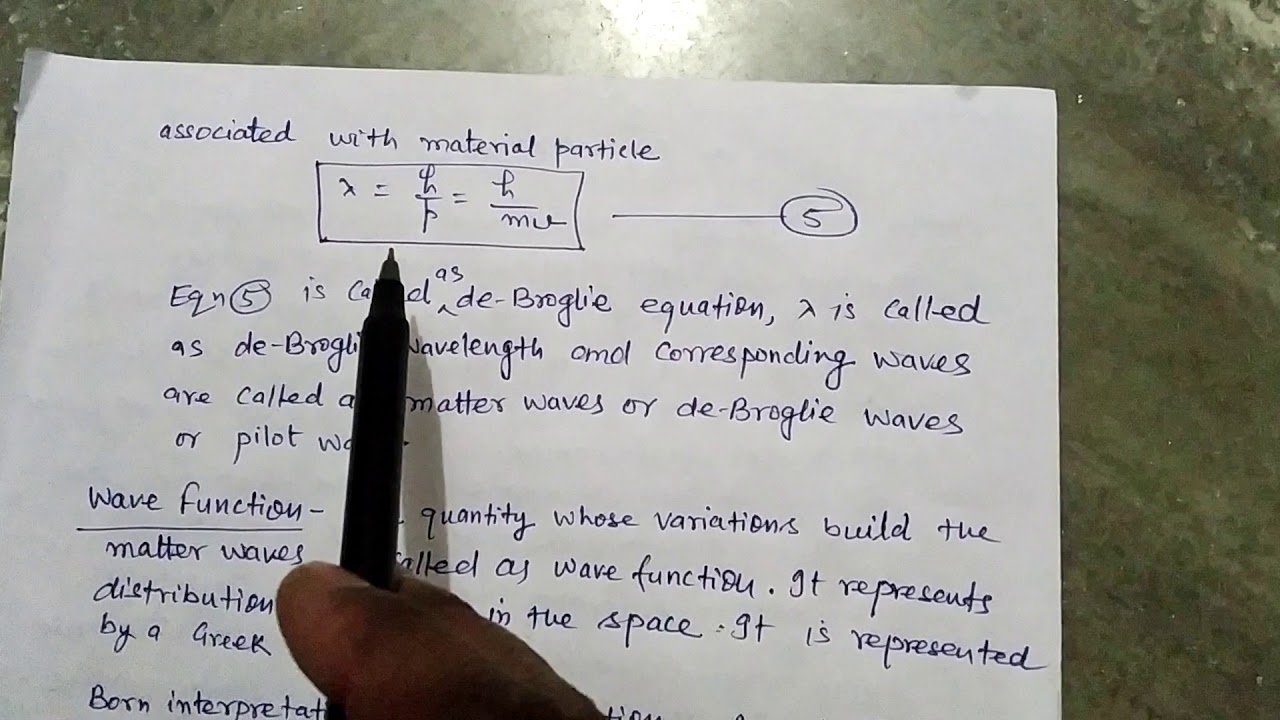 associated with material particle
λ = h/p = h/mv ⑤
Eqn ⑤ is called as de-Broglie equation, λ is called
as de-Broglie wavelength and corresponding waves
are called matter waves or de-Broglie waves
or pilot
Wave function- quantity whose variations build the
matter waves called as wave function. It represents
distribution in the space. It is represented
by a Greek
Born